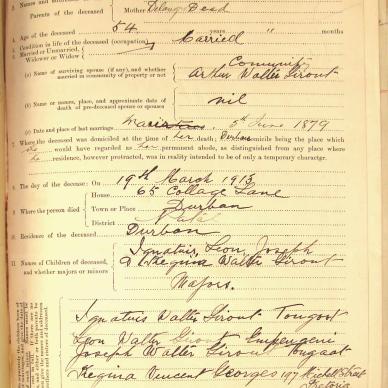 Parents of the deceased
Mother Delange Dead
4. Age of the deceased 54 years " months
5. Condition in life of the deceased (occupation)
Married or Unmarried, Married
Widower or Widow
Community
(a) Name of surviving spouse (if any), and whether married in community of property or not
Arthur Walter Sirout
(b) Name or names, place, and approximate date of death of pre-deceased spouse or spouses
nil
(c) Date and place of last marriage 5th June 1879
Where the deceased was domiciled at the time of her death, Durban being the place which
she would regarded as her permanent abode, as distinguished from any place where
he residence, however protracted, was in reality intended to be of only a temporary character.
8 The day of the decease: On 19th March 1913
House 65 College Lane
9 Where the person died Town or Place Durban
District Natal
10 Residence of the deceased Durban
11 Names of Children of deceased, and whether majors or minors
Ignatius, Leon, Joseph
& Regina Walter Sirout
Majors.
Ignatius Walter Sirout Tongaat
Leon Walter Sirout Empangeni
Joseph Walter Sirout Tongaat
Regina Vincent Georges 197 Michell Street
Pretoria